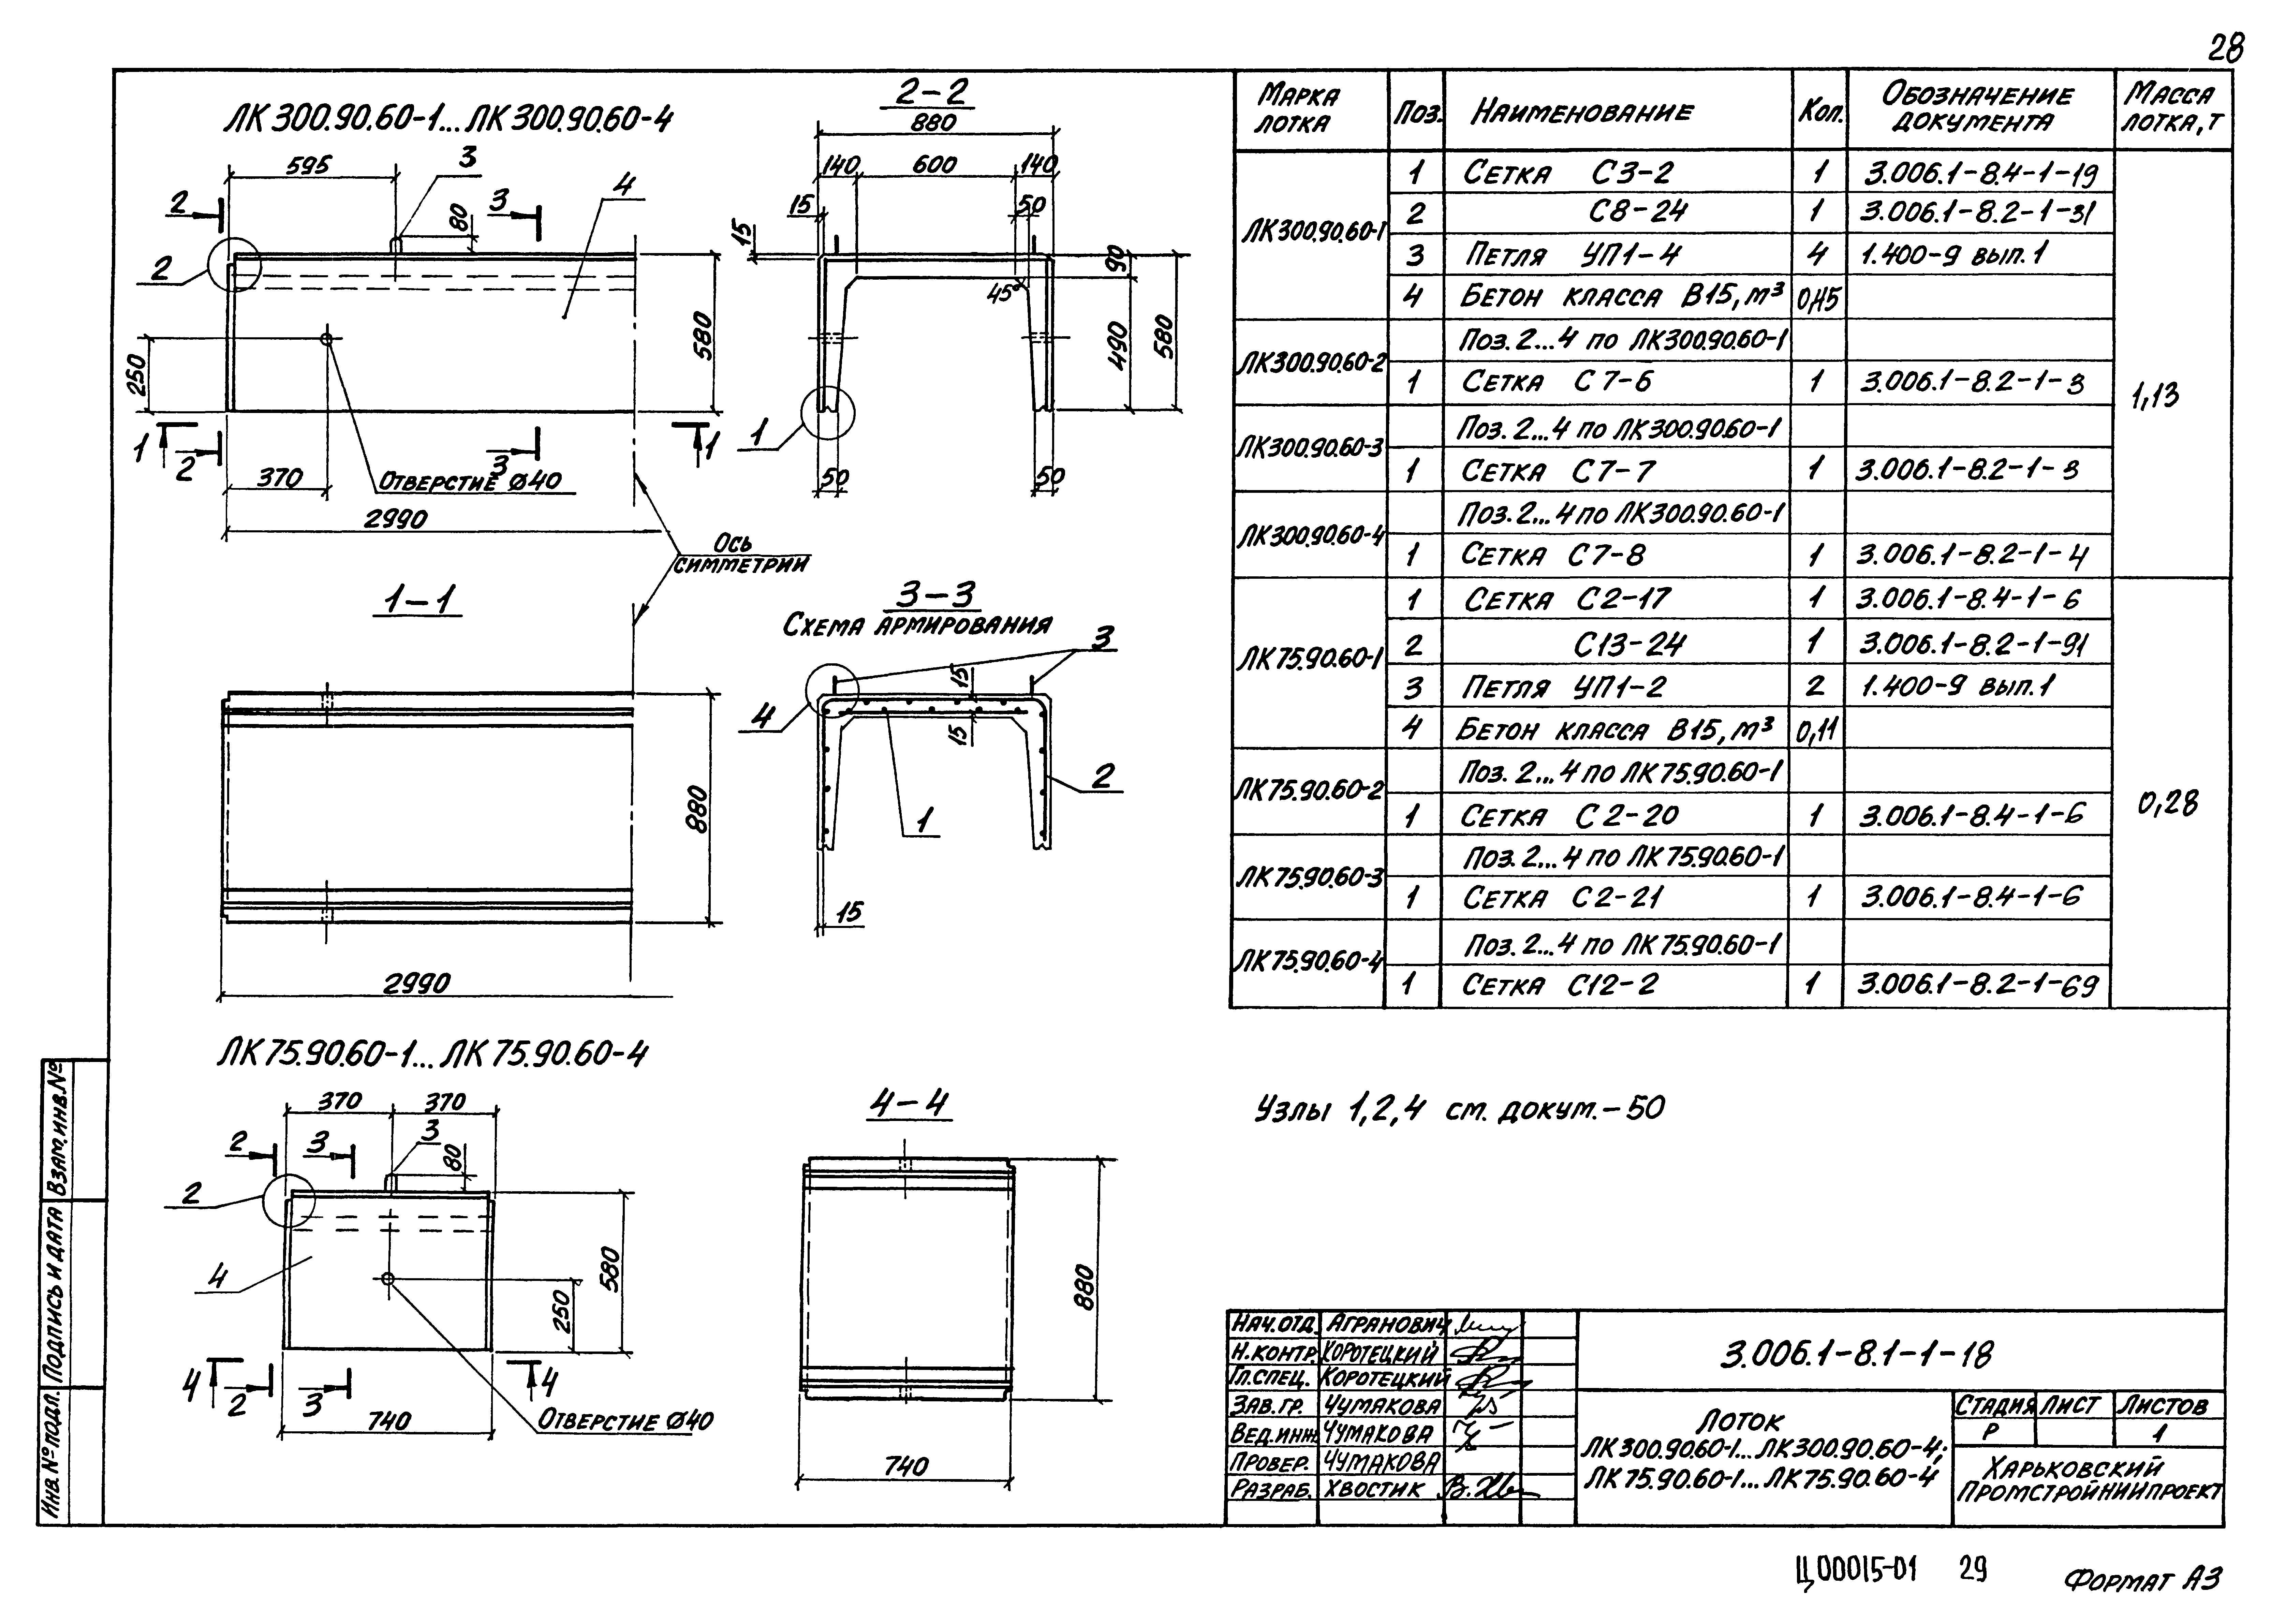 28
ЛК300.90.60-1...ЛК300.90.60-4
595
3
2
3
4
80
2
580
250
1
2
3
1
370
Отверстие ø40
2990
Ось
симметрии
2-2
880
140 600 140
15
50
15
90
45°
490
580
1
50
50
1-1
880
2990
3-3
Схема армирования
3
15
4
15
2
1
15
ЛК75.90.60-1...ЛК75.90.60-4
370 370
2
3
3
80
2
4
580
250
4
2
3
4
740
Отверстие ø40
4-4
880
740
Марка лотка Поз. Наименование Кол. Обозначение документа Масса лотка, т
ЛК300.90.60-1 1 Сетка С3-2 1 3.006.1-8.4-1-19 1,13
2 С8-24 1 3.006.1-8.2-1-31
3 Петля УП1-4 4 1.400-9 вып.1
4 Бетон класса В15, м³ 0,45
ЛК300.90.60-2 Поз. 2...4 по ЛК300.90.60-1
1 Сетка С7-6 1 3.006.1-8.2-1-3
ЛК300.90.60-3 Поз. 2...4 по ЛК300.90.60-1
1 Сетка С7-7 1 3.006.1-8.2-1-3
ЛК300.90.60-4 Поз. 2...4 по ЛК300.90.60-1
1 Сетка С7-8 1 3.006.1-8.2-1-4
ЛК75.90.60-1 1 Сетка С2-17 1 3.006.1-8.4-1-6 0,28
2 С13-24 1 3.006.1-8.2-1-91
3 Петля УП1-2 2 1.400-9 вып.1
4 Бетон класса В15, м³ 0,11
ЛК75.90.60-2 Поз. 2...4 по ЛК75.90.60-1
1 Сетка С2-20 1 3.006.1-8.4-1-6
ЛК75.90.60-3 Поз. 2...4 по ЛК75.90.60-1
1 Сетка С2-21 1 3.006.1-8.4-1-6
ЛК75.90.60-4 Поз. 2...4 по ЛК75.90.60-1
1 Сетка С12-2 1 3.006.1-8.2-1-69
Узлы 1,2,4 см. докум.-50
Взам.инв.№
Подпись и дата
Инв.№подл.
Нач.отд. Агранович
Н.контр. Коротецкий
Гл.спец. Коротецкий
Зав.гр. Чумакова
Вед.инж Чумакова
Провер. Чумакова
Разраб. Хвостик
3.006.1-8.1-1-18
Лоток
ЛК300.90.60-1...ЛК300.90.60-4;
ЛК75.90.60-1...ЛК75.90.60-4
Стадия Лист Листов
Р 1
Харьковский
Промстройниипроект
Ц00015-01 29
Формат А3